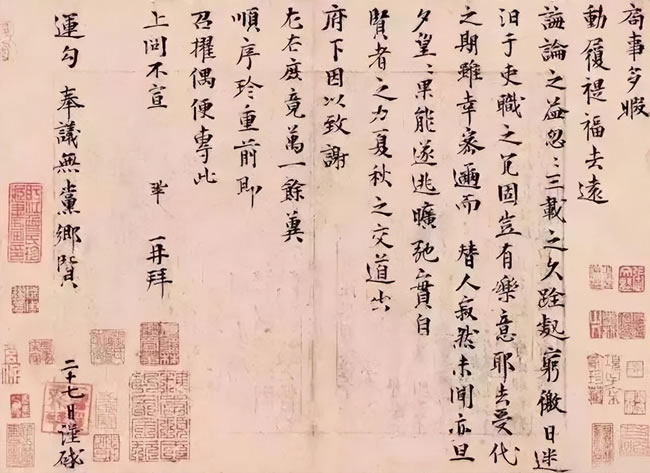 局事多暇
動履禔福去遠
誨論之益忽〻三載之久跧處窮徼日迷
汩于吏職之冗固豈有樂意耶去受代
之期雖幸密邇而 替人寂然未聞亦旦
夕望〻果能遂逃曠弛實自
賢者之力夏秋之交道出
府下因以致謝
左右庶竟萬一餘冀
順序珍重前即
召擢偶便專此
上問不宣 鞏 再拜
運勾 奉議無黨鄉賢
二十七日謹啓